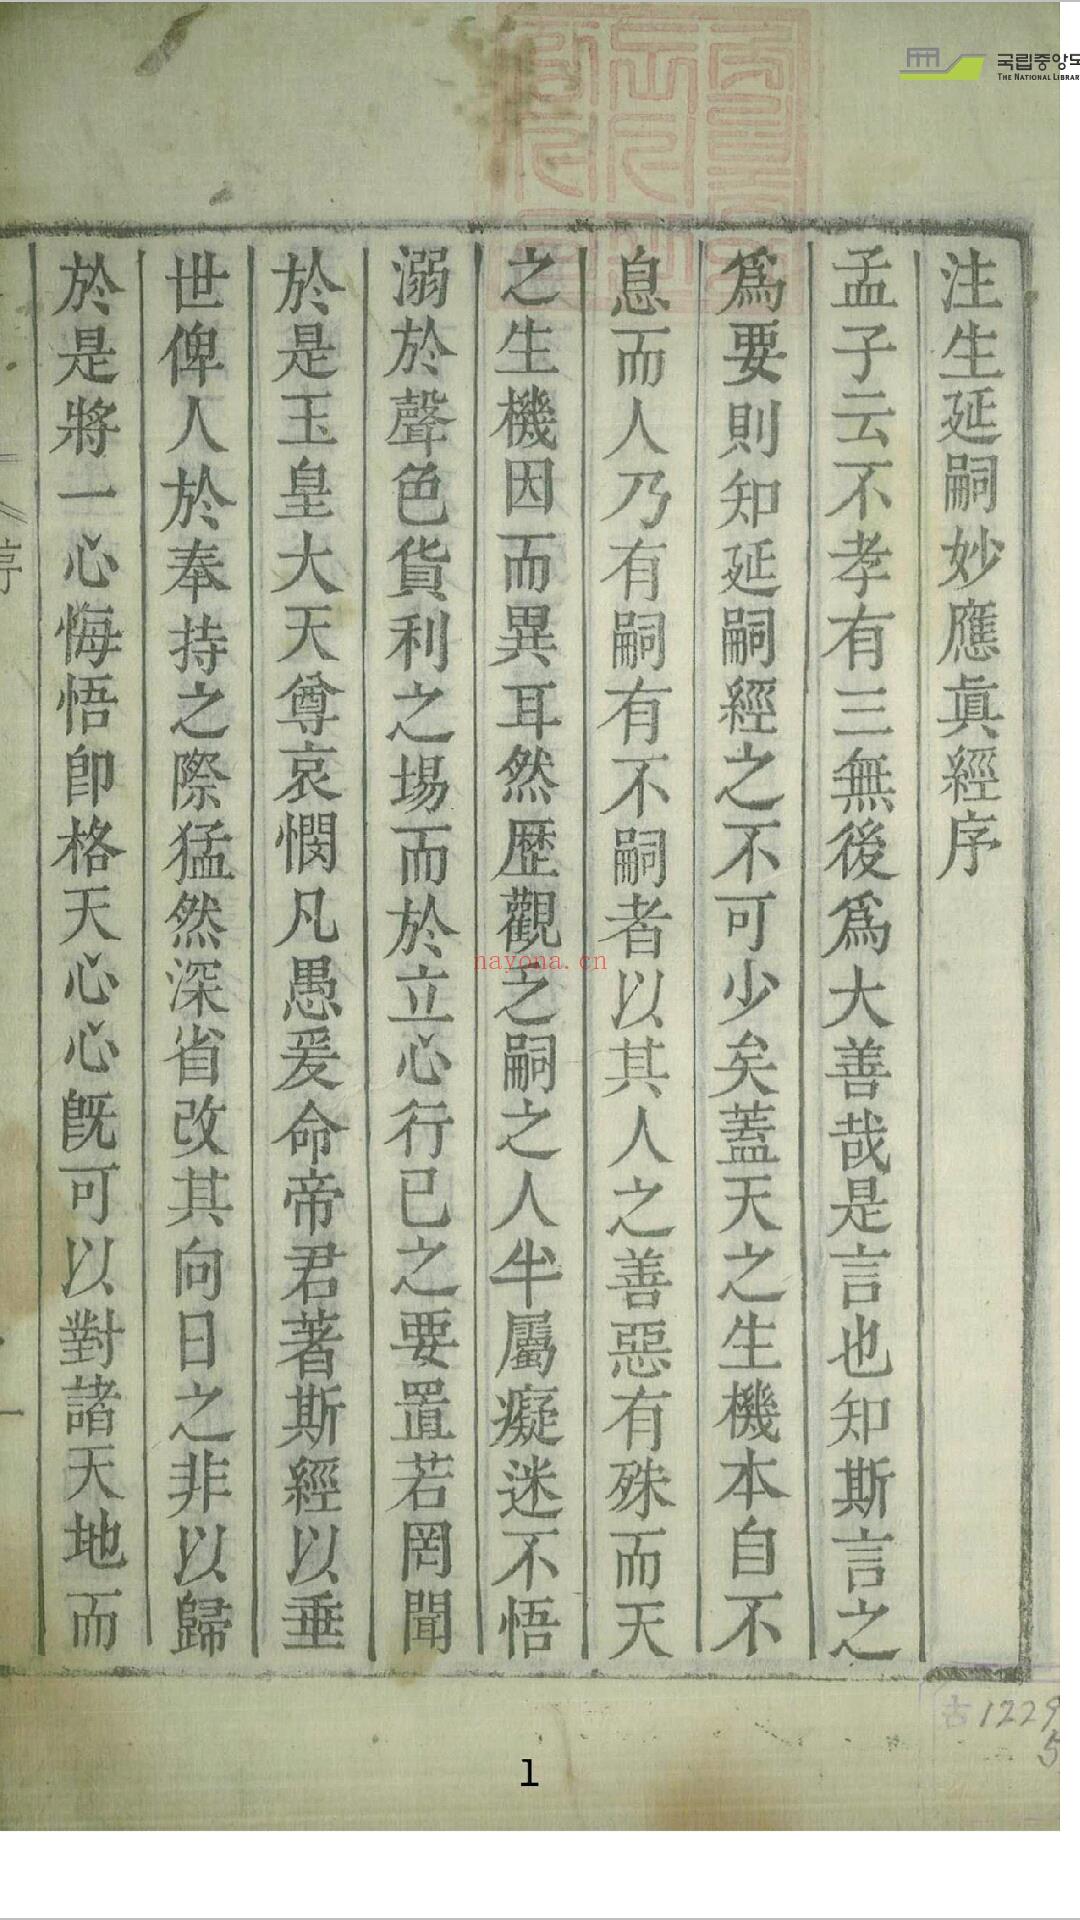 注生延嗣妙應眞經序
孟子云不孝有三無後爲大善哉是言也知斯言之
爲要則知延嗣經之不可少矣蓋天之生機本自不
息而人乃有嗣有不嗣者以其人之善惡有殊而天
之生機因而異耳然歷觀之嗣之人半屬癡迷不悟
溺於聲色貨利之場而於立心行已之要置若罔聞
於是玉皇大天尊哀憫凡愚爰命帝君著斯經以垂
世俾人於奉持之際猛然深省改其向日之非以歸
於是將一心悔悟卽格天心心旣可以對諸天地而
序
一
국립중앙도
THE NATIONAL LIBRAR
nayona.cn
古1229
5
1